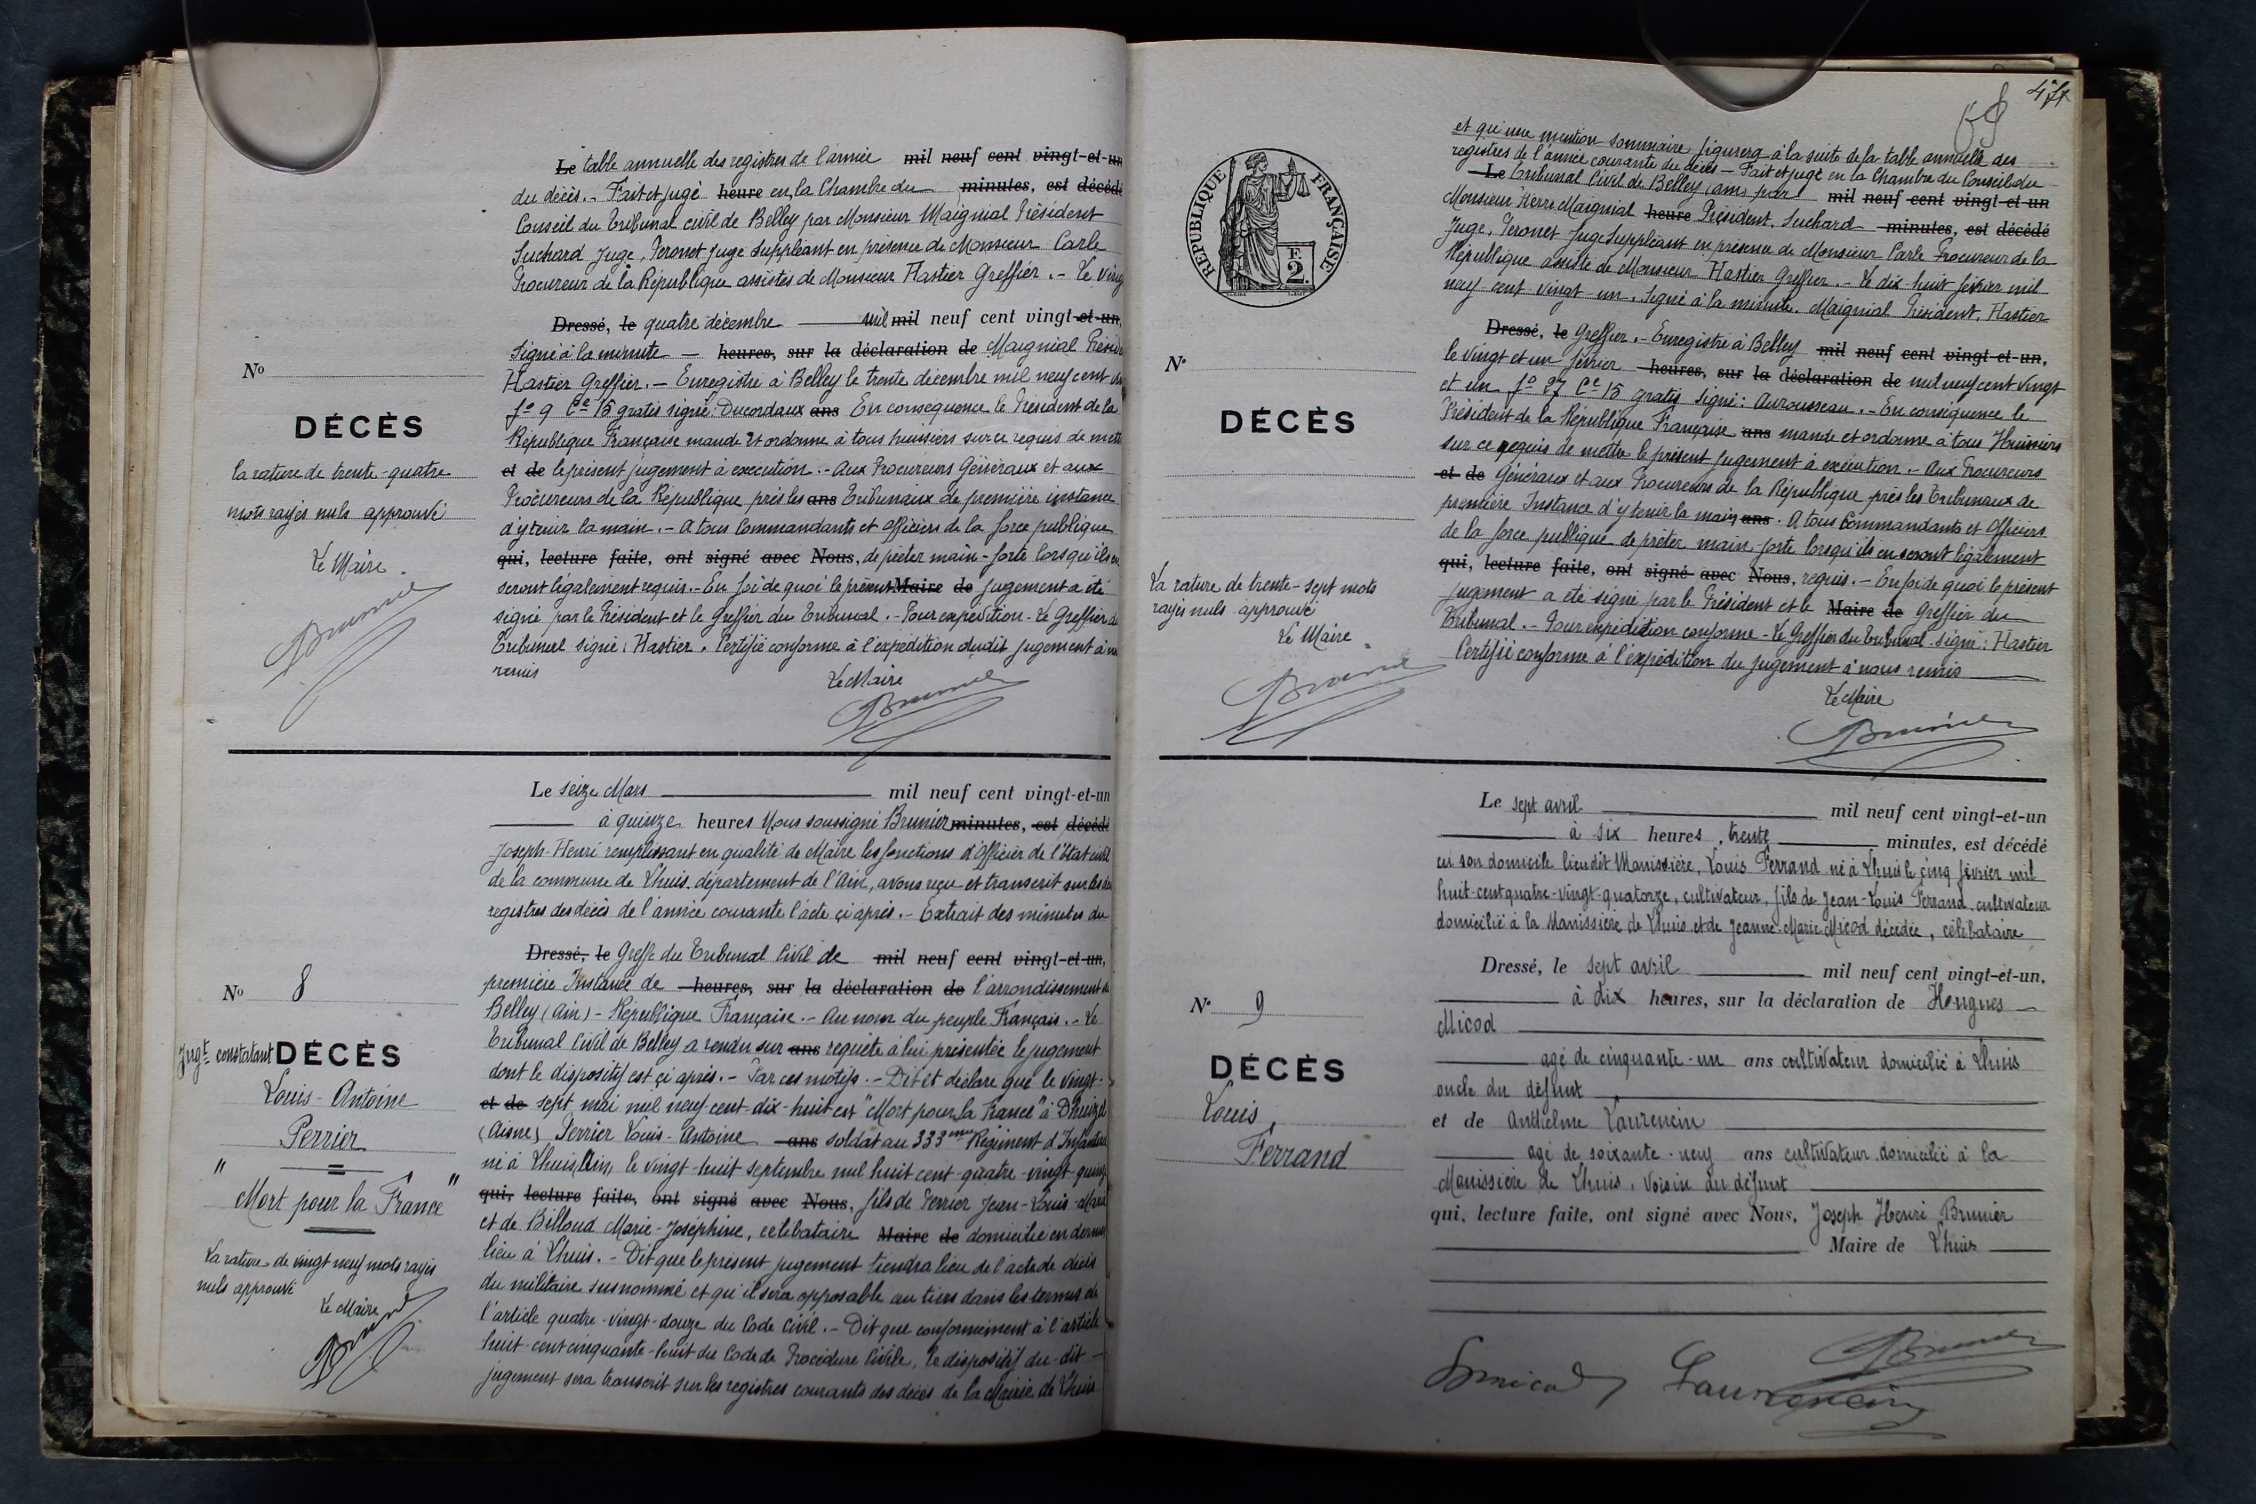 Le table annuelle des registres de l'année mil neuf cent vingt-et-un
du décès. - Fait et jugé heure en la Chambre du minutes, est décédé
Conseil du Tribunal civil de Belley par Monsieur Maignial Président
Suchard Juge, Peronet Juge Suppléant en présence de Monsieur Carle
Procureur de la République assistés de Monsieur Hastier Greffier. - Le vingt
Dressé, le quatre décembre mil mil neuf cent vingt-et-un,
Signé à la minute - heures, sur la déclaration de Maignial
Hastier Greffier. - Enregistré à Belley le trente décembre mil neuf cent
fo 9 Ce 15 gratis signé: Ducordaux ans En conséquence le Président de la
République Française mande et ordonne à tous huissiers sur ce requis de
et de le présent jugement à exécution. - Aux Procureurs Généraux et aux
Procureurs de la République près les ans Tribunaux de première instance
d'y tenir la main. - A tous Commandants et officiers de la force publique
qui, lecture faite, ont signé avec Nous, de prêter main-forte lorsqu'ils en
seront légalement requis. - En foi de quoi le présent Maire de jugement a été
signé par le Président et le Greffier du Tribunal. - Pour expédition - Le Greffier du
Tribunal signé: Hastier. Certifié conforme à l'expédition dudit jugement à
remis
Le Maire
Brunier
No
DÉCÈS
la rature de trente-quatre
mots rayés nuls approuvé
Le Maire
Brunier
Le seize Mars mil neuf cent vingt-et-un
à quinze heures Nous soussigné Brunier minutes, est décédé
Joseph-Henri remplissant en qualité de Maire les fonctions d'Officier de l'Etat civil
de la commune de Lhuis, département de l'Ain, avons reçu et transcrit sur les
registres des décès de l'année courante l'acte çi après. - Extrait des minutes du
Dressé, le Greffe du Tribunal Civil de mil neuf cent vingt-et-un,
première Instance de heures, sur la déclaration de l'arrondissement de
Belley (Ain) - République Française. - Au nom du peuple Français. - Le
Tribunal Civil de Belley a rendu sur ans requête à lui présentée le jugement
dont le dispositif est çi après. - Par ces motifs. - Dit et déclare que le vingt-
et de sept mai mil neuf cent dix-huit est "Mort pour la France" à Dhuizel
(Aisne) Perrier Louis-Antoine ans soldat au 333ème Régiment d'Infanterie
né à Lhuis, Ain, le vingt-huit septembre mil huit cent-quatre-vingt-quinze
qui, lecture faite, ont signé avec Nous, fils de Perrier Jean-Louis-Marie
et de Billoud Marie-Joséphine, célibataire Maire de domicilié en dernier
lieu à Lhuis. - Dit que le présent jugement tiendra lieu de l'acte de décès
du militaire susnommé et qu'il sera opposable au tiers dans les termes de
l'article quatre-vingt-douze du Code Civil. - Dit que conformément à l'article
huit-cent cinquante-huit du Code de Procédure Civile, le dispositif du dit
jugement sera transcrit sur les registres courants des décès de la Mairie de Lhuis
No 8
Jugt constatant DÉCÈS
Louis-Antoine
Perrier
"Mort pour la France"
La rature de vingt neuf mots rayés
nuls approuvé
Le Maire
Brunier
47
et qu'une mention sommaire figurera à la suite de la table annuelle des
registres de l'année courante du décès - Fait et jugé en la Chambre du Conseil du
Le Tribunal Civil de Belley (Ain) par mil neuf cent vingt-et-un
Monsieur Pierre Maignial heure Président, Suchard minutes, est décédé
Juge, Peronet Juge Suppléant en présence de Monsieur Carle Procureur de la
République assisté de Monsieur Hastier Greffier. - Le dix-huit février mil
neuf-cent vingt-un. Signé à la minute. Maignial Président, Hastier
Dressé, le Greffier. - Enregistré à Belley mil neuf cent vingt-et-un,
le vingt et un février heures, sur la déclaration de mil neuf cent vingt
et un fo 27 Ce 15 gratis signé: Aurousseau. - En conséquence le
Président de la République Française ans mande et ordonne à tous Huissiers
sur ce requis de mettre le présent jugement à exécution. - Aux Procureurs
et de Généraux et aux Procureurs de la République près les Tribunaux de
première Instance d'y tenir la main ans. A tous Commandants et Officiers
de la force publique de prêter main-forte lorsqu'ils en seront légalement
qui, lecture faite, ont signé avec Nous, requis. - En foi de quoi le présent
jugement a été signé par le Président et le Maire de Greffier du
Tribunal. - Pour expédition conforme - Le Greffier du Tribunal signé: Hastier
Certifié conforme à l'expédition du jugement à nous remis
Le Maire
Brunier
RÉPUBLIQUE FRANÇAISE
E
2.
No
DÉCÈS
La rature de trente-sept mots
rayés nuls approuvé
Le Maire
Brunier
Le sept avril mil neuf cent vingt-et-un
à six heures, trente minutes, est décédé
en son domicile lieudit Manissière, Louis Ferrand né à Lhuis le cinq février mil
huit-cent quatre-vingt-quatorze, cultivateur, fils de Jean-Louis Ferrand, cultivateur
domicilié à la Manissière de Lhuis et de Jeanne-Marie Micod décédée, célibataire
Dressé, le sept avril mil neuf cent vingt-et-un,
à dix heures, sur la déclaration de Hugues
Micod
agé de cinquante-un ans cultivateur domicilié à Lhuis
oncle du défunt
et de Anthelme Laurencin
agé de soixante-neuf ans cultivateur domicilié à la
Manissière de Lhuis, voisin du défunt
qui, lecture faite, ont signé avec Nous, Joseph Henri Brunier
Maire de Lhuis
Brunier
Micod Laurencin
No 9
DÉCÈS
Louis
Ferrand